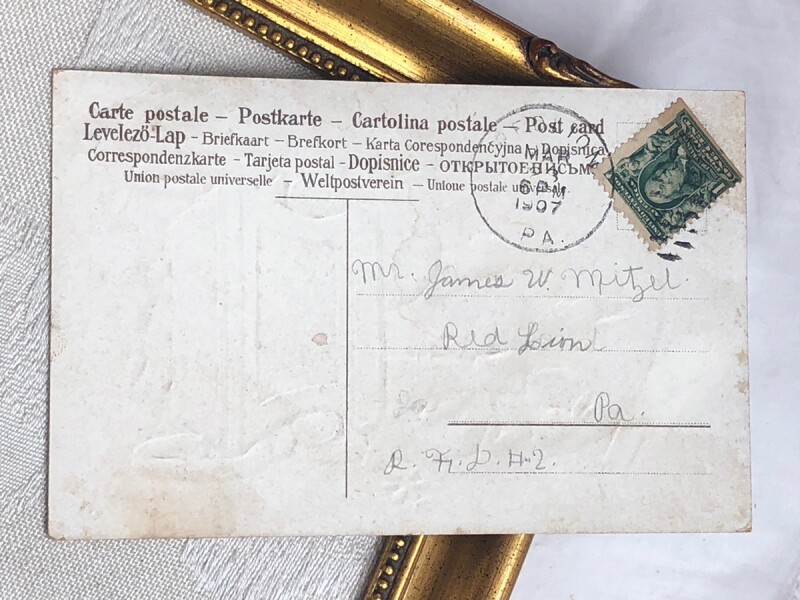 Carte postale – Postkarte – Cartolina postale – Post card
Levelező-Lap - Briefkaart – Brefkort – Karta Corespondencyjna - Dopisnica
Correspondenzkarte - Tarjeta postal - Dopisnice - ОТКРЫТОЕ ПИСЬМО
Union postale universelle – Weltpostverein – Unione postale universale
MAR
6 PM
1907
PA.
Mr. James W. Mitzel.
Red Lion
Pa.
R. F. D. #2.